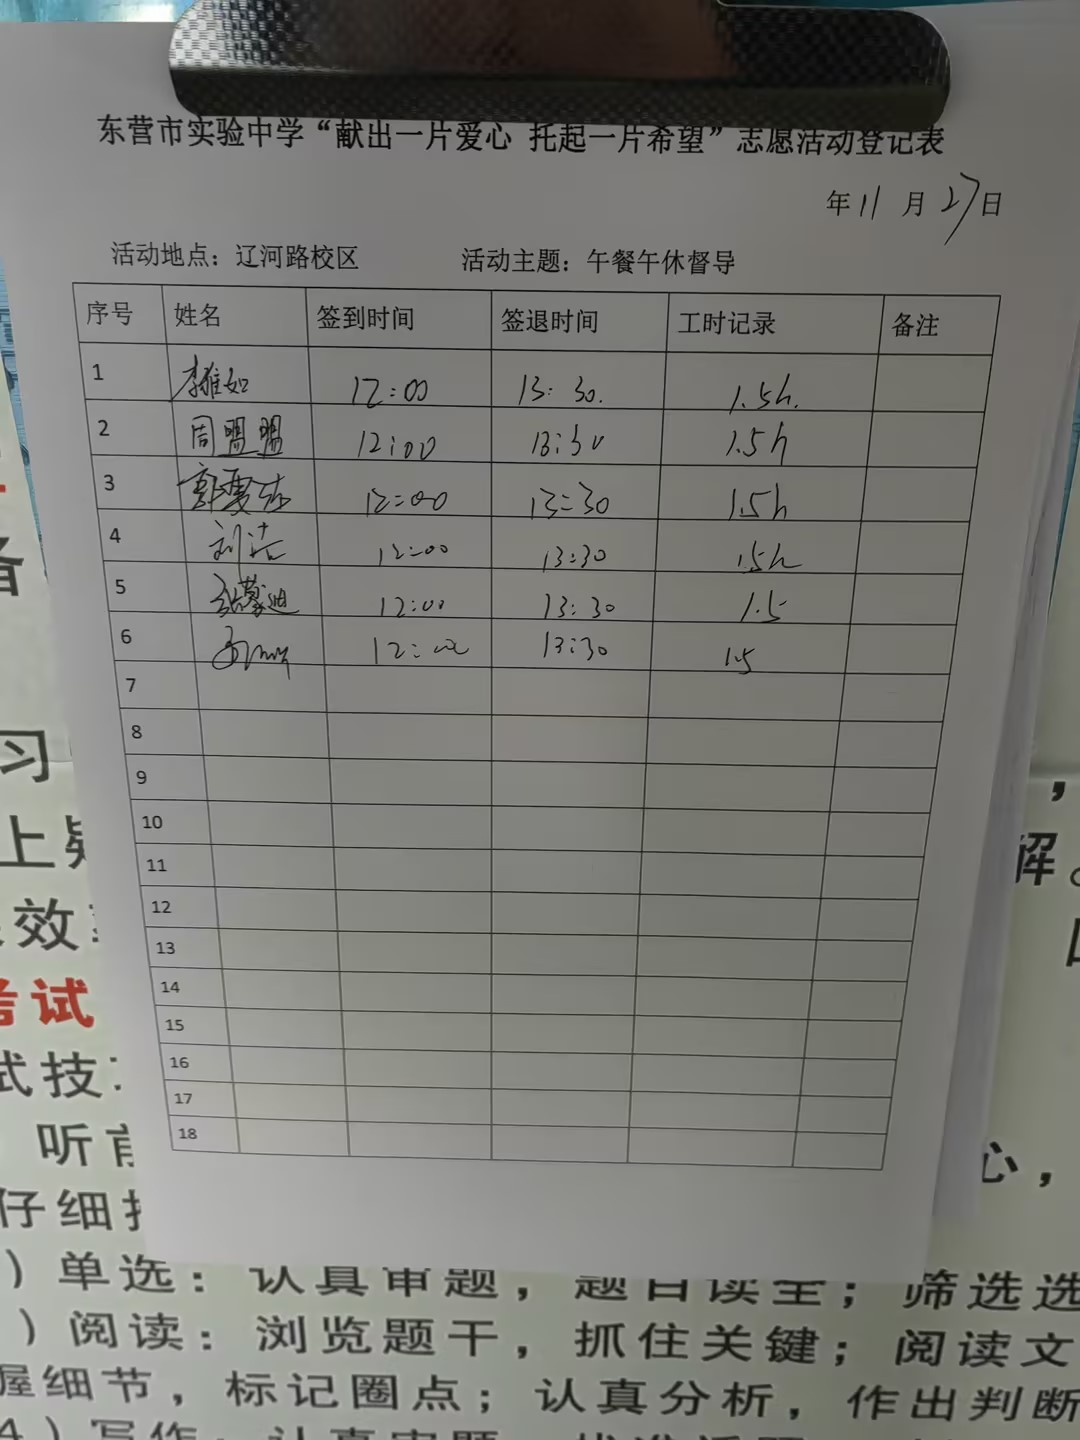 东营市实验中学“献出一片爱心 托起一片希望”志愿活动登记表
年 11 月 27 日
活动地点：辽河路校区 活动主题：午餐午休督导
序号 姓名 签到时间 签退时间 工时记录 备注
1 李雅如 12:00 13:30. 1.5h.
2 周盟盟 12:00 13:30 1.5h
3 12:00 13:30 1.5h
4 刘洁 12:00 13:30 1.5h
5 张蒙迪 12:00 13:30 1.5
6 12:00 13:30 1.5
7
8
9
10
11
12
13
14
15
16
17
18
习
上 解。
效
考试
式技
听前 心，
仔细
）单选：认真审题，题目读全；筛选选
）阅读：浏览题干，抓住关键；阅读文
握细节，标记圈点；认真分析，作出判断
4）写作：认真审题